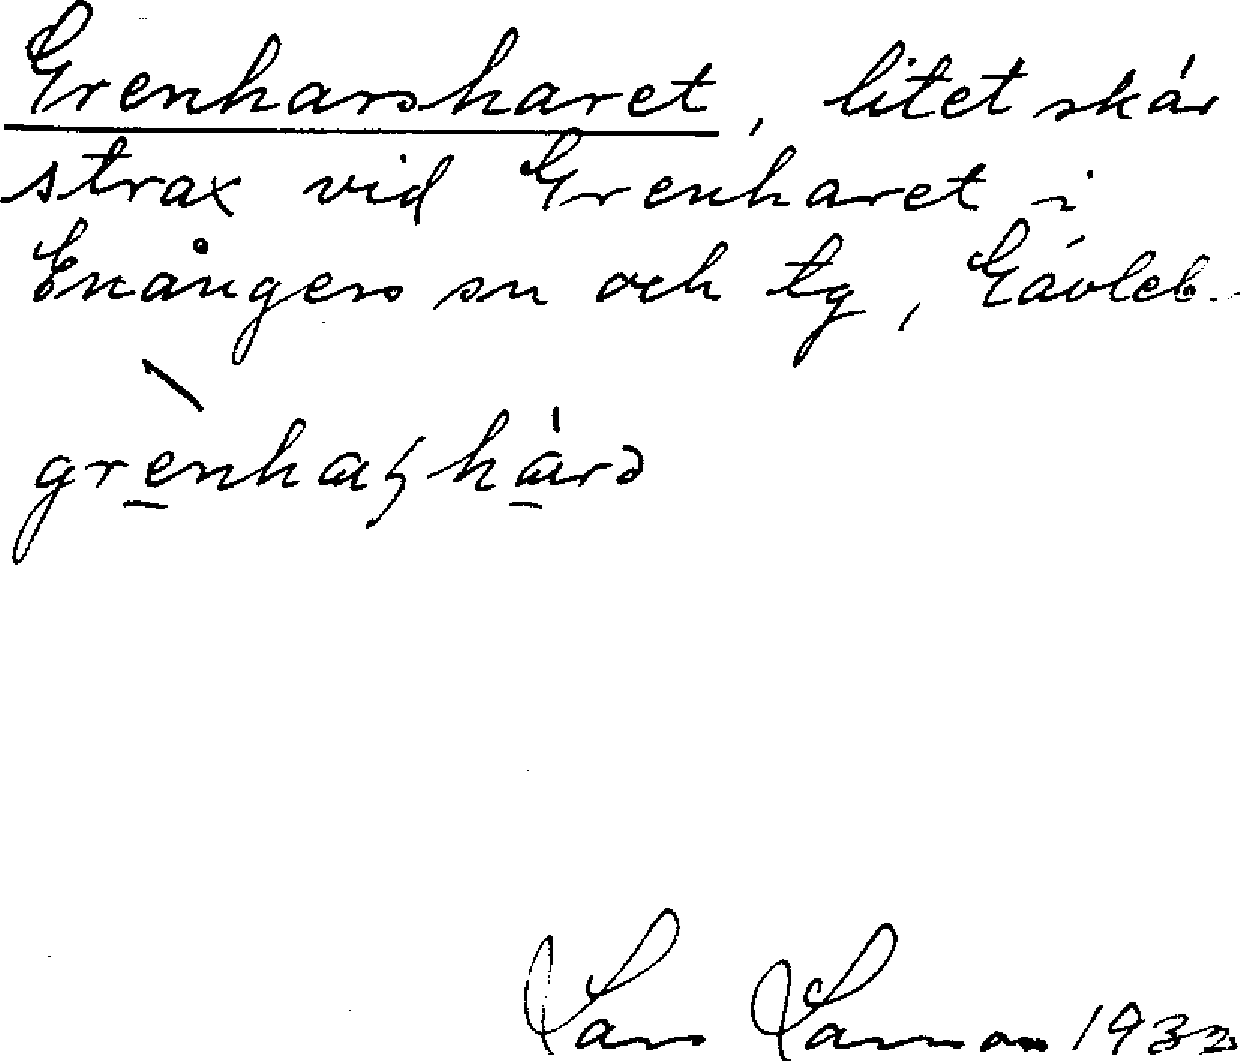 Grenharsharet, litet skär
strax vid Grenharet i
Enångers sn och tg, Gävleb.
Lars Larsson 1933